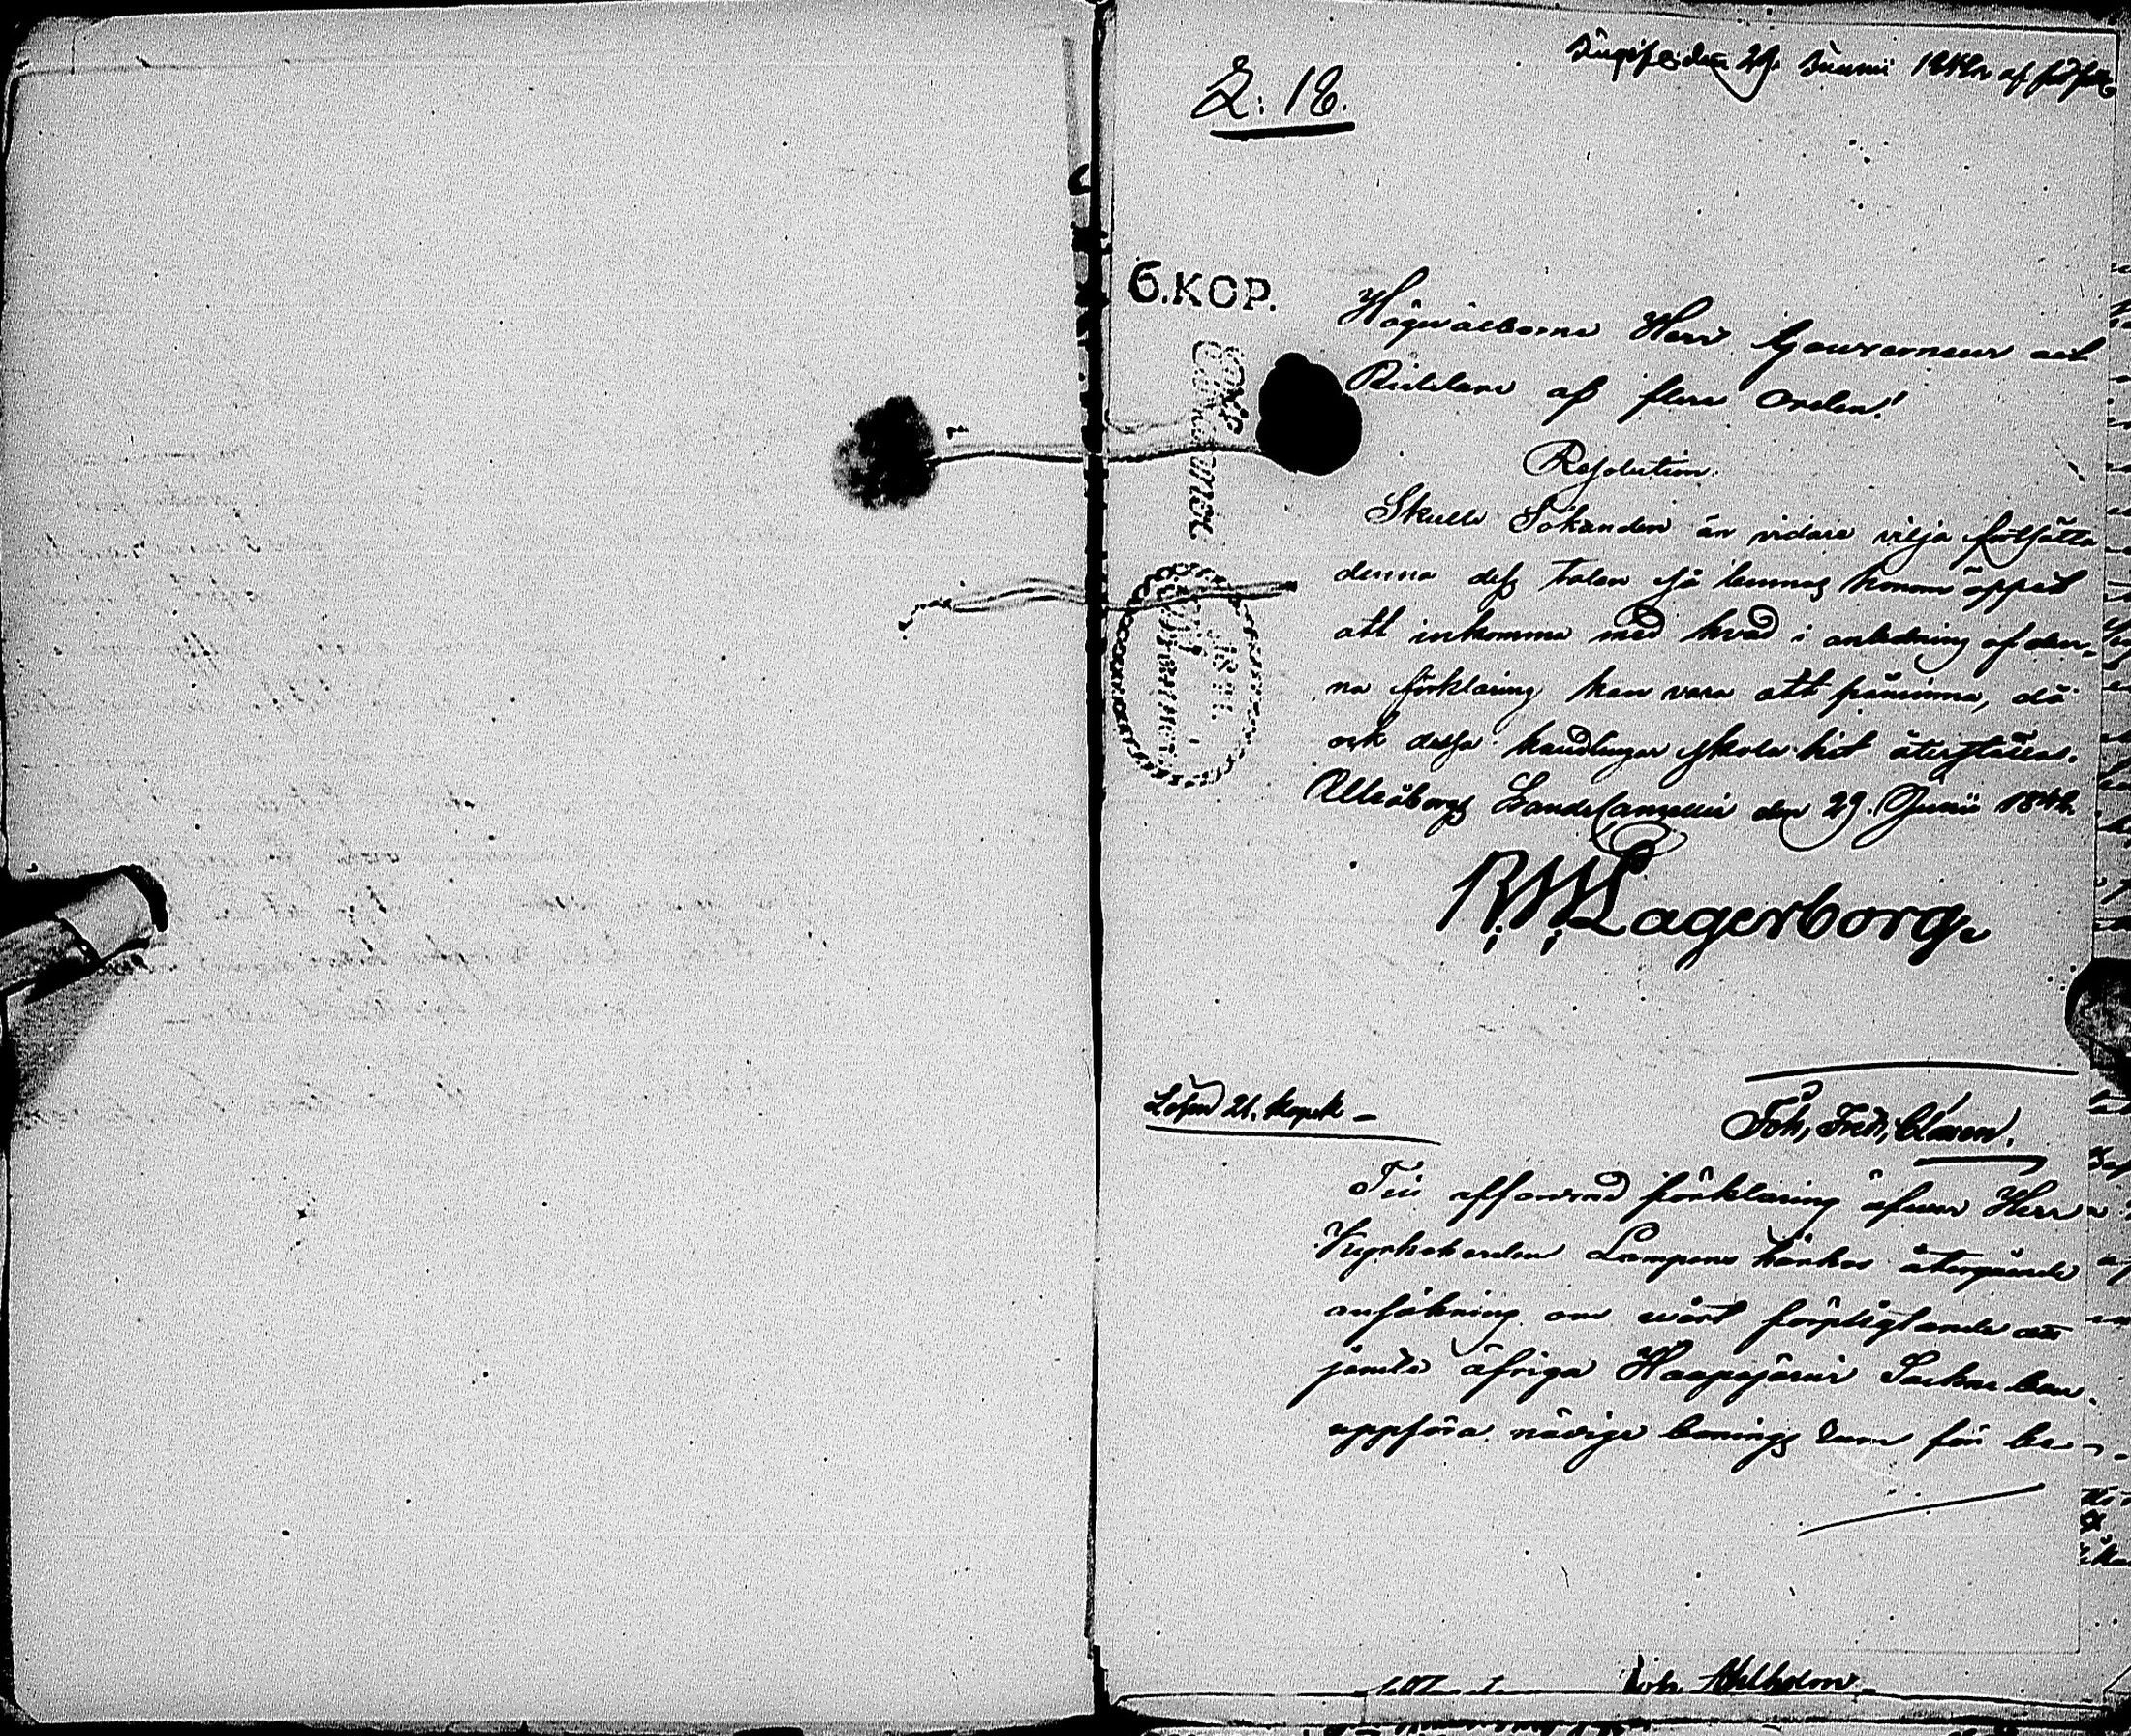 den 29 Junii 1842 af
2: 18.
6.KOP.
Högvälborne Herr Gouverneur och
Riddare af flere Orden!
Resolution.
Skulle Sökanden än vidare vilja fortsätta
denna dess talan så lemnas honom öppet
att inkomma med hvad i anledning af den-
na förklaring kan vara att påminna, då
och dessa handlingar skola hit återställas.
Uleåborgs LandsCancellie den 29. Junii 1842.
R.W.Lagerborg.
Lösen 21. Kopek –
Joh, Fred,
Till affordrad förklaring öfver Herr
Kyrkoherden Lampens härhos återgående
ansökning om vårt förpligtande att
jemte öfrige Haapajärvi Sockne boer
uppföra nödige bonings rum för be-
Joh. Ahlholm